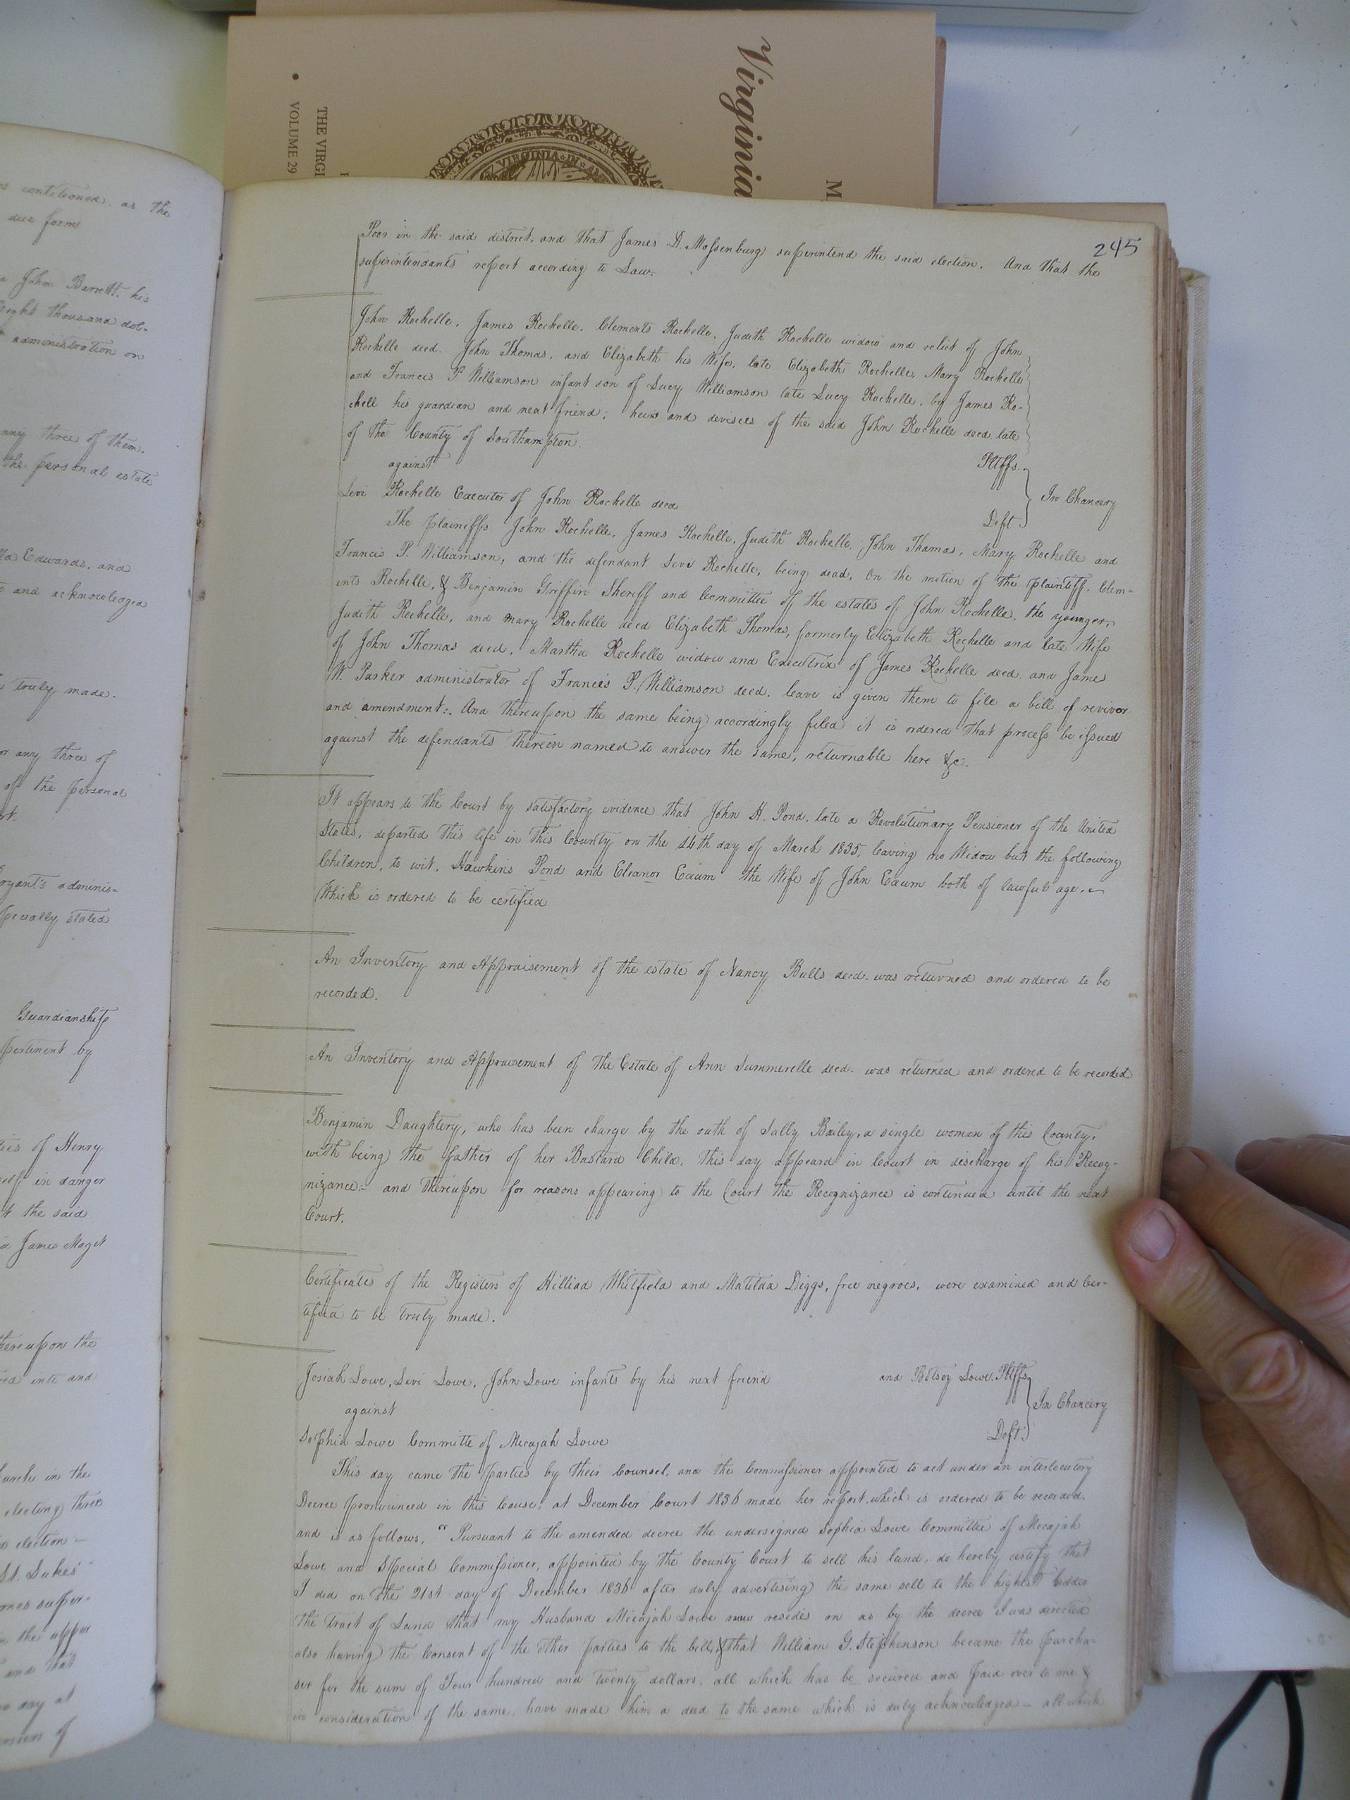 Virginia
M
THE VIRGI
VOLUME 29
VIRGINIA IN AM
245
Poor in the said district, and that James D. Massenburg superintend the said election. And that the
superintendants report according to Law.
John Rochelle, James Rochelle, Clements Rochelle, Judith Rochelle widow and relict of John
Rochelle decd. John Thomas, and Elizabeth his Wife, late Elizabeth Rochelle, Mary Rochelle
and Francis P Williamson infant son of Lucy Williamson late Lucy Rochelle, by James Ro-
chell his guardian and next friend; heirs and devisees of the said John Rochelle decd. late
of the County of Southampton
Pltffs.
against
In Chancery
Levi Rochelle Executor of John Rochelle decd
Deft.
The plaintiffs John Rochelle, James Rochelle, Judith Rochelle, John Thomas, Mary Rochelle and
Francis P. Williamson, and the defendant Levi Rochelle, being dead, On the motion of the plaintiff Clem-
ents Rochelle, & Benjamin Griffin Sheriff and Committee of the estates of John Rochelle, the younger,
Judith Rochelle, and Mary Rochelle decd Elizabeth Thomas, formerly Elizabeth Rochelle and late Wife
of John Thomas decd, Martha Rochelle widow and Executrix of James Rochelle decd, and James
W. Parker administrator of Francis P. Williamson decd. leave is given them to file a bill of revivor
and amendment. And thereupon the same being accordingly filed it is ordered that process be issued
against the defendants therein named to answer the same, returnable here &c.
It appears to the Court by satisfactory evidence that John H. Pond, late a Revolutionary Pensioner of the United
States, departed this life in this County on the 14th day of March 1835, leaving no Widow but the following
Children, to wit, Hawkins Pond and Eleanor Exum the Wife of John Exum both of lawful age.
Which is ordered to be certified
An Inventory and Appraisement of the estate of Nancy Bulls decd. was returned and ordered to be
recorded.
An Inventory and Appraisement of the Estate of Ann Summerelle decd. was returned and ordered to be recorded
Benjamin Daughtery, who has been charge by the oath of Sally Bailey, a single woman of this County,
with being the father of her Bastard Child, this day appeard in Court in discharge of his Recog-
nizance and thereupon for reasons appearing to the Court the Recognizance is continued until the next
Court.
Certificates of the Registers of Hilliad Whitfield and Matilda Diggs, free negroes, were examined and Cer-
tified to be truly made.
Josiah Lowe, Levi Lowe, John Lowe infants by his next friend and Betsey Lowe, Pltffs
against
In Chancery
Sophia Lowe Committe of Micajah Lowe
Deft.
This day came the parties by their Counsel, and the Commissioner appointed to act under an interlocutory
Decree pronounced in this Cause, at December Court 1836 made her report, which is ordered to be recorded,
and is as follows, "Pursuant to the amended decree the undersigned Sophia Lowe Committee of Micajah
Lowe and Special Commissioner, appointed by the County Court to sell his land, do hereby certify that
I did on the 21st day of December 1836 after duly advertising the same sell to the highest bidder
the tract of Land that my Husband Micajah Lowe now resides on as by the decree I was directed
also having the Consent of the other parties to the bill, & that William G. Stephenson became the purcha-
ser for the sum of Four hundred and twenty dollars, all which has be secured and paid over to me &
in consideration of the same, have made him a deed to the same which is duly acknowledged all which
contitioned, as the
due form
John Barrett his
eight thousand dol-
administration on
any three of them,
the personal estate
Edwards, and
and acknowledged
truly made.
or any three of
of the personal
adminis-
specially stated
Guardianship
by
of Henry
self in danger
the said
James Maget
thereupon the
into and
in the
electing three
election
St. Lukes
and that
day at
of